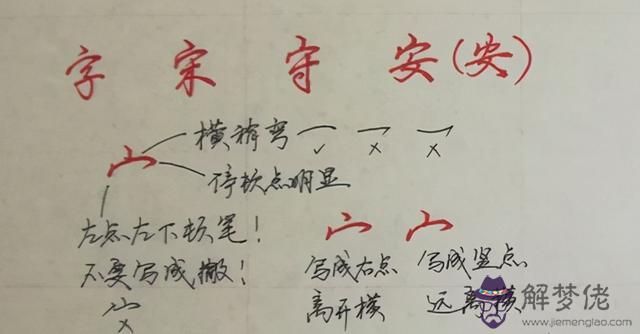 字 宋 守 安(安)
横稍弯 ✓ × ×
宀
停顿点明显
左点左下顿笔!
不要写成撇!
宀
×
宀 宀
写成右点 写成竖点
离开横 远离横
解梦佬
www.jiemenglao.com